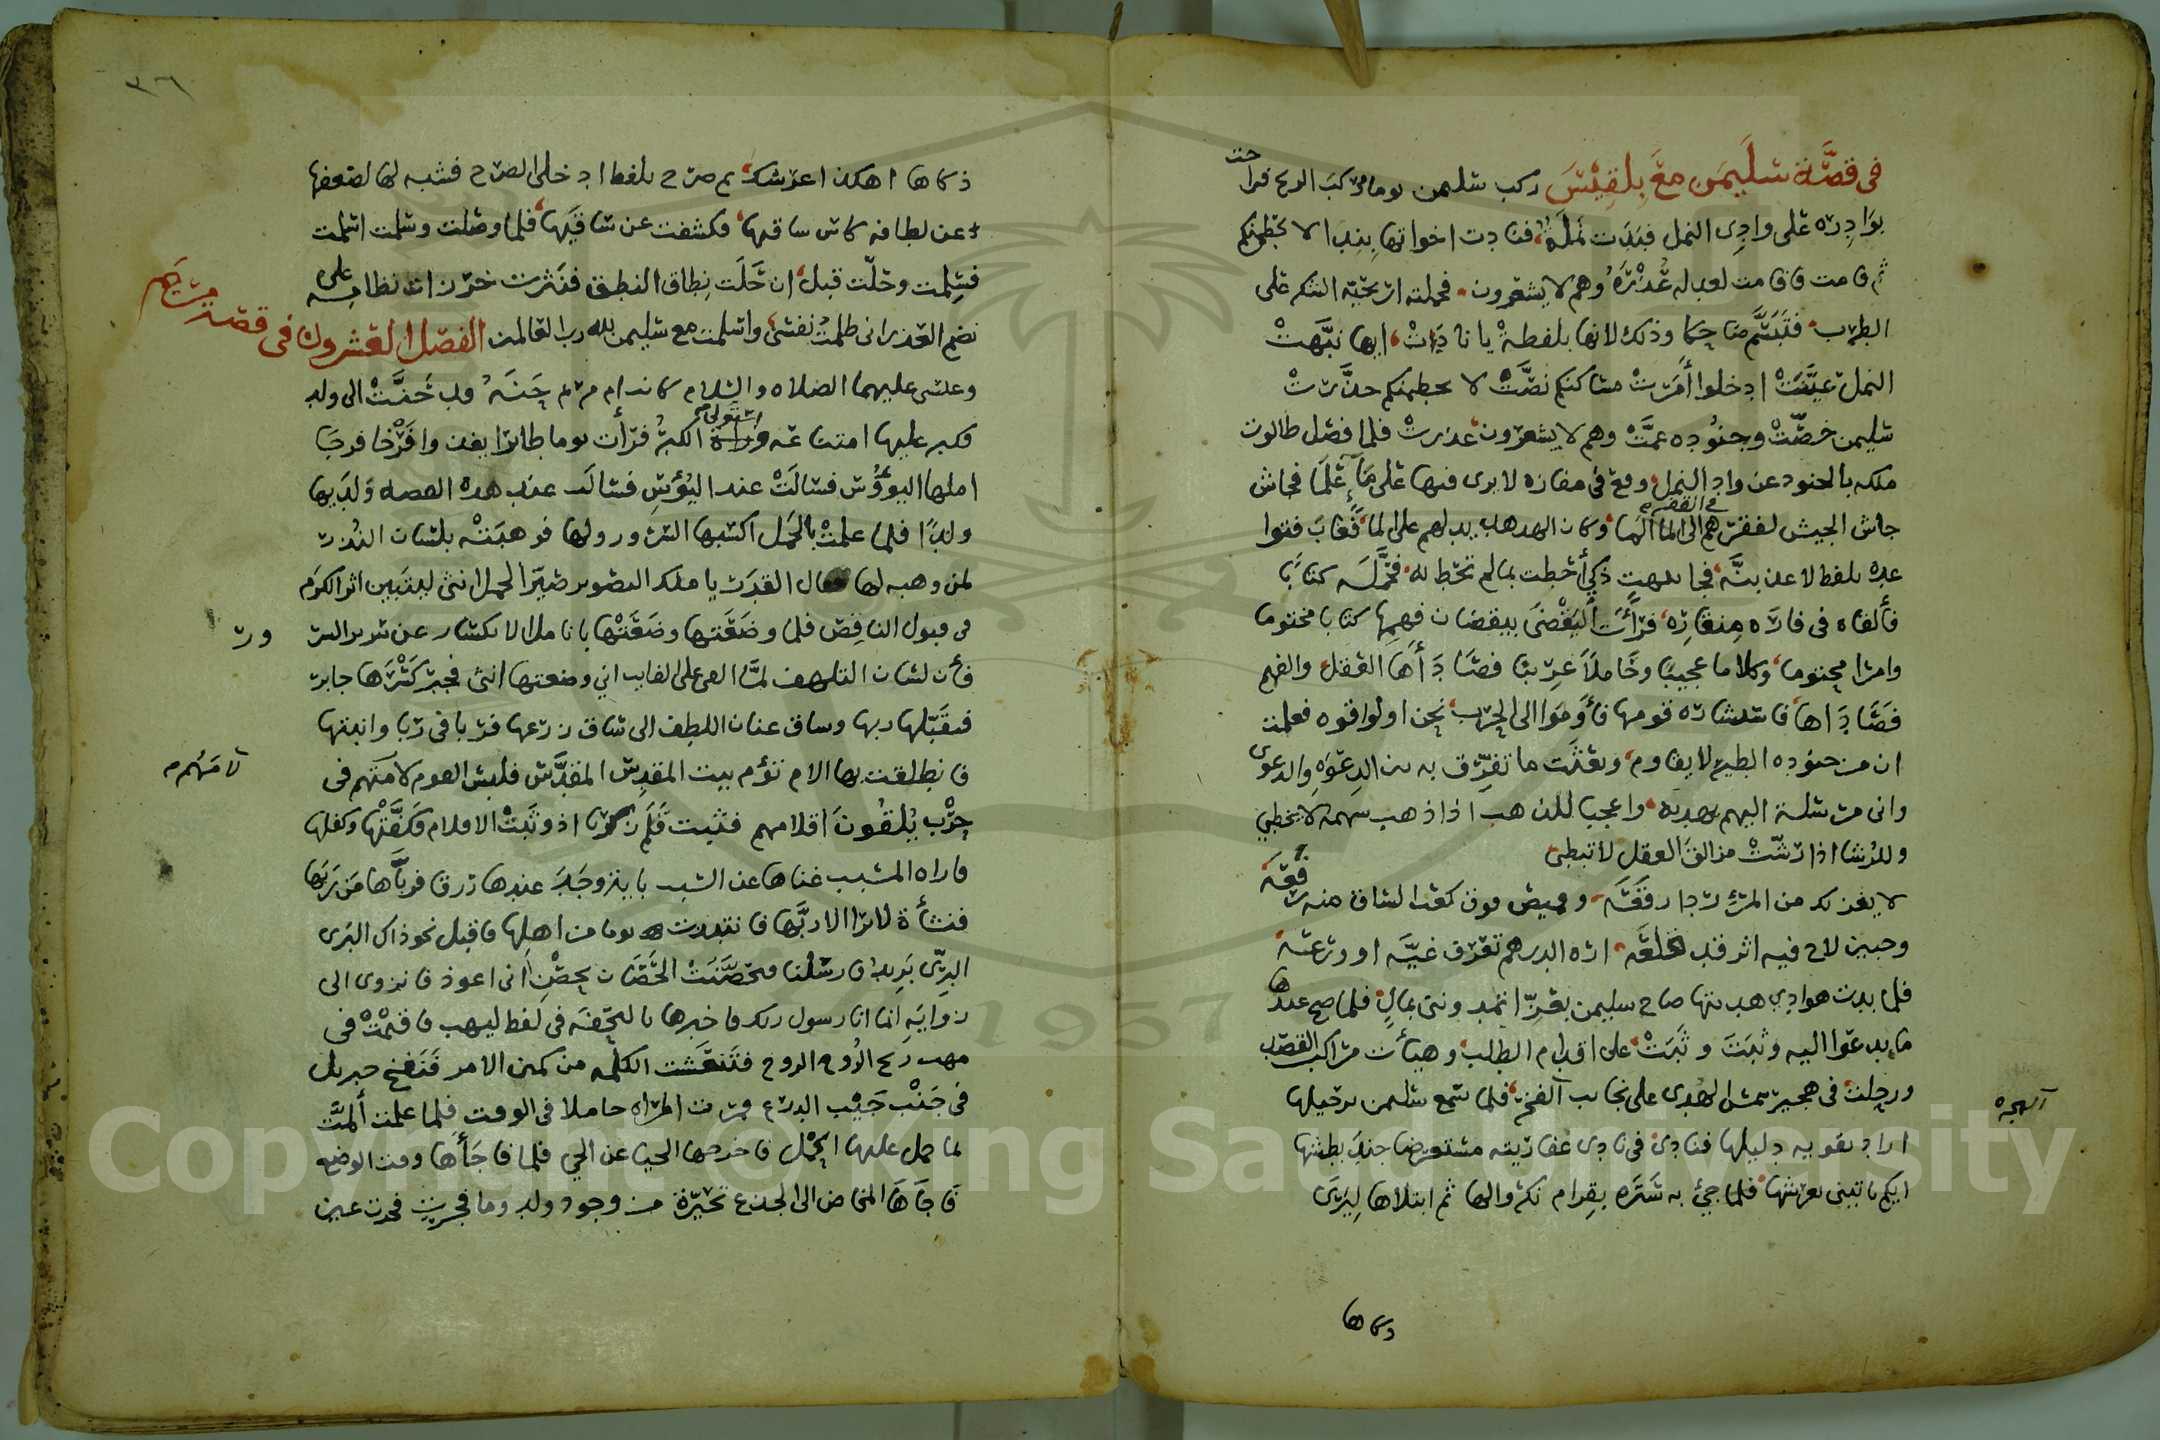 في قصة سليمن مع بلقيس ركب سليمن يوما مركب الريح فراحت
بوادره على وادي النمل فبدت نملة فنادت اخواتها بندا لا يحطمنكم
ثم قامت فاقامت لعداله عذره وهم لا يشعرون فحملته اريحية الشكر على
الطرب فتبسم ضاحكا وذلك لانها بلفظة يا نادت ايها نبهت
النمل عينت ادخلوا أمرت مساكنكم نصت لا يحطمنكم حذرت
سليمن خصت وجنوده عمت وهم لا يشعرون عذرت فلما فصل طالوت
ملكه بالجنود عن واد النمل وقع في مفازه لا يرى فيها على ماء علما فجاش
جاش الجيش لفقرهم الى الما وكان الهدهد يدلهم على الما فغاب فتوا
عده بلفظ لاعذبنه فجا بلهت ذكي أحطت بما لم تحط به فحمله كتابا
فألقاه في قاره منقاره فرأت اليقضى بيقضان فهمها كتابا مختوما
وامرا محتوما وكلاما عجيبا وحاملا غريبا فصادأها العقل والفهم
فصاداها فاستشاره قومها فأوموا الى الحرب نحن اولوا قوه فعلمت
ان من جنوده الطير لا يقاوم وبعثت ما تفرق به بين الدعوه والدعوى
واني مرسلة اليهم بهديه واعجبا للذهب اذا ذهب سهمه لا يخطي
وللرشا اذا رشت مزالق العقل لا تبطي
لا يغرنك من المرء ردا رقعه وقميص فوق كعب الساق منه رفعه
وجبين لاح فيه اثر قد خلعه اره الدرهم تعرف غيه او ورعه
فلما بدت هوادي هديتها صاح سليمن بعز اتمدونني بمال فلما صح عندها
ما يدعوا اليه وثبت وثبت على اقدام الطلب وهيأت مراكب القصد
ورحلت في هجير شمس الهدى على نجايب العزم فلما سمع سليمن برحيلها
اراد تقويه دليلها فنادى في نادي عفاريته مستعرضا جند بطشها
ايكم ياتيني بعرشها فلما جئ به ستره بقرام نكروا لها ثم ابتلاها ليرى
آلهجره
ذكاها
٣٦
ذكاها اهكذا عرشك ثم صرح بلفظ ادخلي الصرح فشبه لها لضعفها
عن لطافه كاس ساقيها فكشفت عن ساقيها فلما وصلت وسلمت اسلمت
فسلمت وحلت قبل ان حلت نطاق النطق فنثرت خرزات نظامه على
نضم العذر اني ظلمت نفسي واسلمت مع سليمن لله رب العالمين الفصل العشرون في قصة مريم
وعيسى عليهما الصلاه والسلام كانت ام مريم حنه قد حنت الى ولد
وكبر عليها امتناعه استولى الكبر فرأت يوما طائرا يغذ وافرخا فرجا
املها اليؤوس فسالت عند اليؤس فسالت عند هذه القصه ولديها
ولدا فلما علمت بالحمل اكسبها السرور ولها فوهبته بلسان النذر
لمن وهبه لها فقال القدر يا ملك التصوير صير الحمل انثى ليتبين اثر الكرم
في قبول الناقص فلما وضعتها وضعتها بانامل الانكسار عن سرير السرور
فأن لسان التلهف لما القي على الفايت اني وضعتها انثى فجبر كسرها جابر
فتقبلها ربها وساق عنان اللطف الى ساق زرعها فربا في ربا وانبتها
فانطلقت بها الام تؤم بيت المقدس المقدس فلبس القوم لامتهم في
حرب يلقون اقلامهم فثبت قلم زكريا اذ وثبت الاقلام فكفتها وكفلها
فاراه المسبب غناها عن السبب باية وجد عندها رزقا فربأها من رباها
فنشأة لا ترا الا ربها فانتبذت يوما من اهلها فاقبل نحو ذاك البرى
البري بريد فارسلنا فتحصنت الحصان بحصن اني اعوذ فانزوى الى
زوايه انما انا رسول ربك فاخبرها بالتحفه في لفظ ليهب فاقيمت في
مهب ريح الروح الروح فتنفست الكلمه من كمين الامر فنفخ جبريل
في جنب جيب الدرع فمرت المراه حاملا في الوقت فلما علمت ألمت
لما حمل عليها الحمل فاخرجها الحيا عن الحي فلما فاجأها وقت الوضع
فاجاها المخاض الى الجذع تحيرة من وجود ولد وما فجرت فجرت عين
لامتهم م